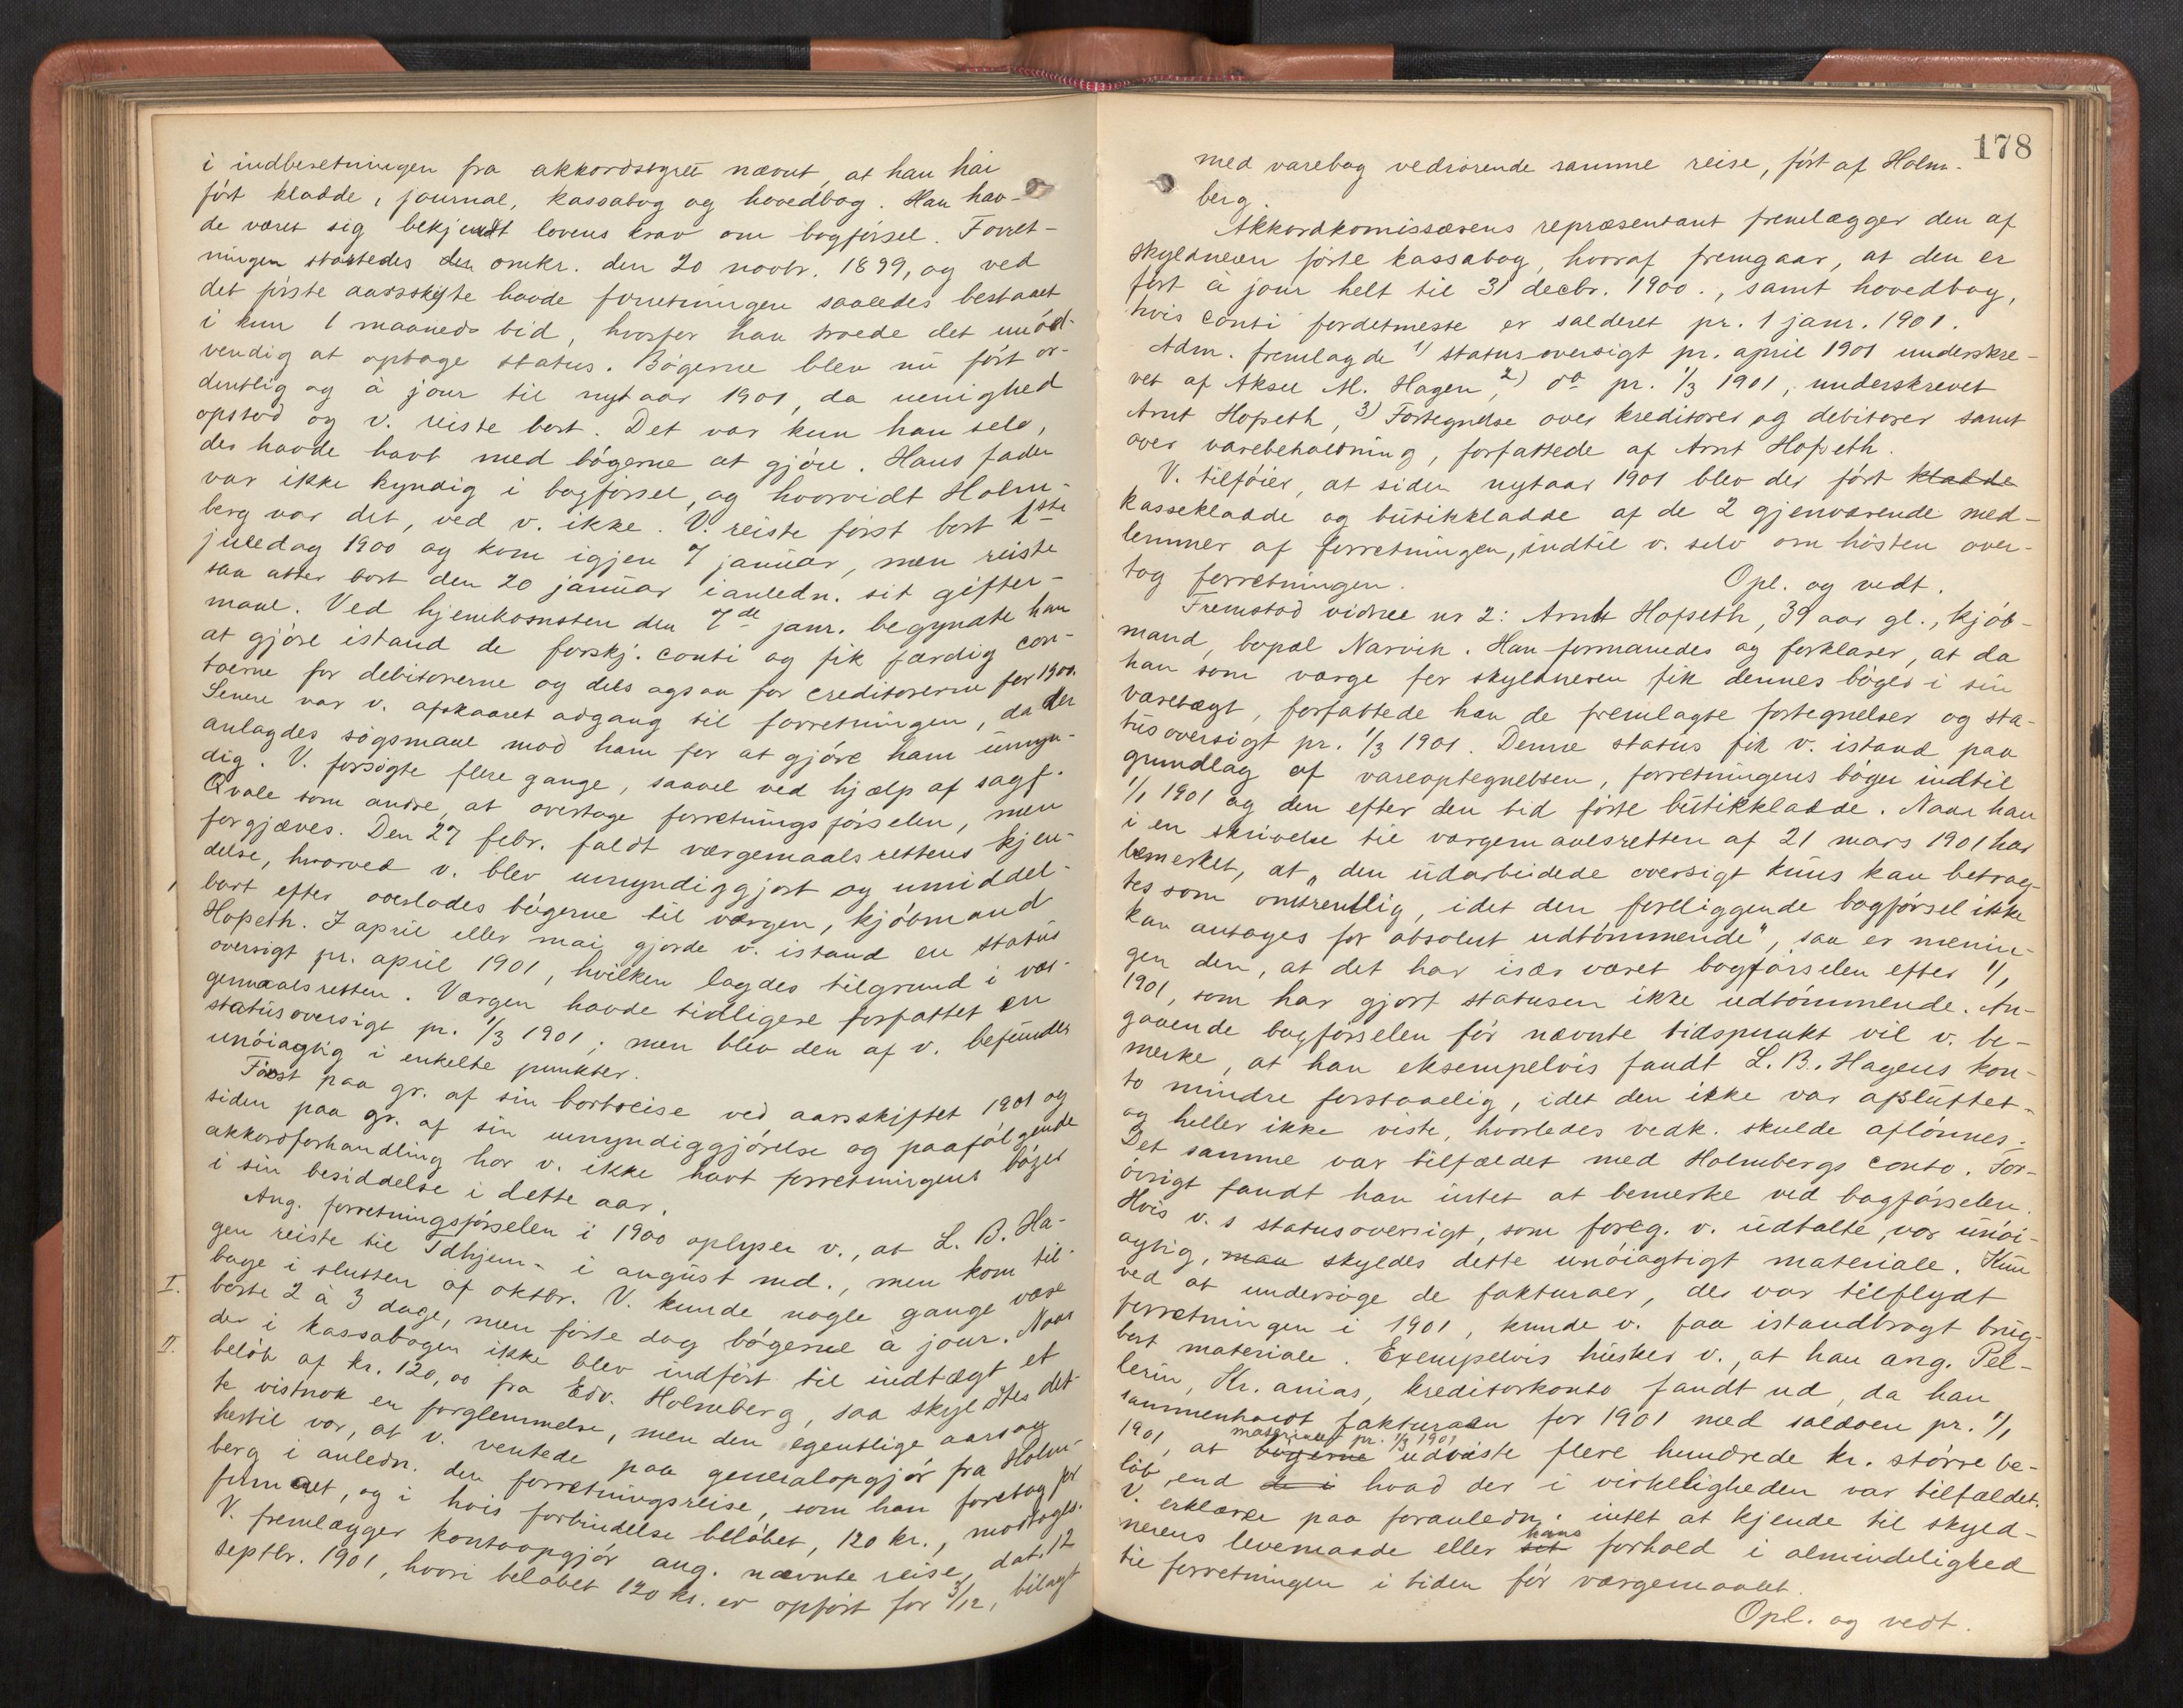 i indberetningen fra akkordstyret nævnt, at han har
ført kladde, journal, kassabog og hovedbog. Han hav-
de været sig bekjendt lovens krav om bogførsel. Forret-
ningen startedes den omkr. den 20 novbr. 1899, og ved
det første aarsskifte havde forretningen saaledes bestaaet
i kun 1 maaneds tid, hvorfor han troede det unød-
vendig at optage status. Bøgerne blev nu ført or-
dentlig og à jour til nytaar 1901, da uenighed
opstod og v. reiste bort. Det var kun han selv,
der havde havt med bøgerne at gjøre. Hans fader
var ikke kyndig i bogførsel, og hvorvidt Holm-
berg var det, ved v. ikke. V. reiste først bort 1ste
juledag 1900 og kom igjen 7 januar, men reiste
saa atter bort den 20 januar ianledn. sit gifter-
maal. Ved hjemkomsten den 7de janr. begyndte han
at gjøre istand de forskj. conti og fik færdig con-
toerne for debitorerne og dels ogsaa for creditorerne for 1900.
Senere var v. afskaaret adgang til forretningen, da der
anlagdes søgsmaal mod ham for at gjøre ham umyn-
dig. V. forsøgte flere gange, saavel ved hjælp af sagf.
Qvale som andre, at overtage forretningsførselen, men
forgjæves. Den 27 febr. faldt værgemaalsrettens kjen-
delse, hvorved v. blev umyndiggjort og umiddel-
bart efter overlodes bøgerne til værgen, kjøbmand
Hopseth. I april eller mai gjorde v. istand en status
oversigt pr. april 1901, hvilken lagdes tilgrund i vær-
gemaalsretten. Værgen havde tidligere forfattet en
statusoversigt pr. 1/3 1901; men blev den af v. befundet
unøiagtig i enkelte punkter.
Først paa gr. af sin bortreise ved aarsskiftet 1901 og
siden paa gr. af sin umyndiggjørelse og paafølgende
akkordforhandling har v. ikke havt forretningens bøger
i sin besiddelse i dette aar.
Ang. forretningsførselen i 1900 oplyser v., at L. B. Ha-
gen reiste til Tdhjem i august md., men kom til-
I. bage i slutten af oktbr. V. kunde nogle gange være
borte 2 à 3 dage, men førte dog bøgerne à jour. Naar
II. der i kassabogen ikke blev indført til indtægt et
beløb af kr. 120,00 fra Edv. Holmberg, saa skyldtes det-
te vistnok en forglemmelse, men den egentlige aarsag
hertil var, at v. ventede paa generalopgjør fra Holm-
berg i anledn. den forretningsreise, som han foretog for
firmaet, og i hvis forbindelse beløbet, 120 kr., modtoges.
V. fremlægger kontoopgjør ang. nævnte reise, dat. 12
septbr. 1901, hvori beløbet 120 kr. er opført for 3/12, bilagt
178
med varebog vedrørende samme reise, ført af Holm-
berg.
Akkordkomissærens repræsentant fremlægger den af
skyldneren førte kassabog, hvoraf fremgaar, at den er
ført à jour helt til 31 decbr. 1900., samt hovedbog,
hvis conti fordetmeste er salderet pr. 1 janr. 1901.
Adm. fremlagde 1) statusoversigt pr. april 1901 underskre-
vet af Aksel M. Hagen, 2) do pr. 1/3 1901, underskrevet
Arnt Hopseth, 3) Fortegnelse over kreditorer og debitorer samt
over varebeholdning, forfattede af Arnt Hofseth.
V. tilføier, at siden nytaar 1901 blev der ført kladde
kassekladde og butikkladde af de 2 gjenværende med-
lemmer af forretningen, indtil v. selv om høsten over-
tog forretningen. Opl. og vedt.
Fremstod vidne nr 2: Arnt Hofseth, 39 aar gl., kjøb-
mand, bopæl Narvik. Han formanedes og forklarer, at da
han som værge for skyldneren fik dennes bøger i sin
varetægt, forfattede han de fremlagte fortegnelser og sta-
tusoversigt pr. 1/3 1901. Denne status fik v. istand paa
grundlag af vareoptegnelsen, forretningens bøger indtil
1/1 1901 og den efter den tid førte butikkladde. Naar han
i en skrivelse til værgemaalsretten af 21 mars 1901 har
bemerket, at "den udarbeidede oversigt kuns kan betrag-
tes som omtrentlig, idet den foreliggende bogførsel ikke
kan antages for absolut udtømmende", saa er menin-
gen den, at det har især været bogførselen efter 1/1
1901, som har gjort statusen ikke udtømmende. An-
gaaende bogførselen før nævnte tidspunkt vil v. be-
merke, at han eksempelvis fandt L. B. Hagens kon-
to mindre forstaaelig, idet den ikke var afsluttet
og heller ikke viste, hvorledes vedk. skulde aflønnes.
Det samme var tilfældet med Holmbergs conto. For-
øvrigt fandt han intet at bemerke ved bogførselen.
Hvis v.s statusoversigt, som foreg. v. udtalte, var unøi-
agtig, maa skyldes dette unøiagtigt materiale. Kun
ved at undersøge de fakturaer, der var tilflydt
forretningen i 1901, kunde v. faa istandbragt brug-
bart materiale. Exempelvis husker v., at han ang. Pel-
lerin, Kr.anias, kreditorkonto fandt ud, da han
sammenholdt fakturaen for 1901 med saldoen pr. 1/1
materialet pr. 1/3 1901
1901, at bøgerne udviste flere hundrede kr. større be-
løb end de i hvad der i virkeligheden var tilfældet.
V. erklærer paa foranledn. intet at kjende til skyld-
hans
nerens levemaade eller sit forhold i almindelighed
til forretningen i tiden før værgemaalet.
Opl. og vedt.